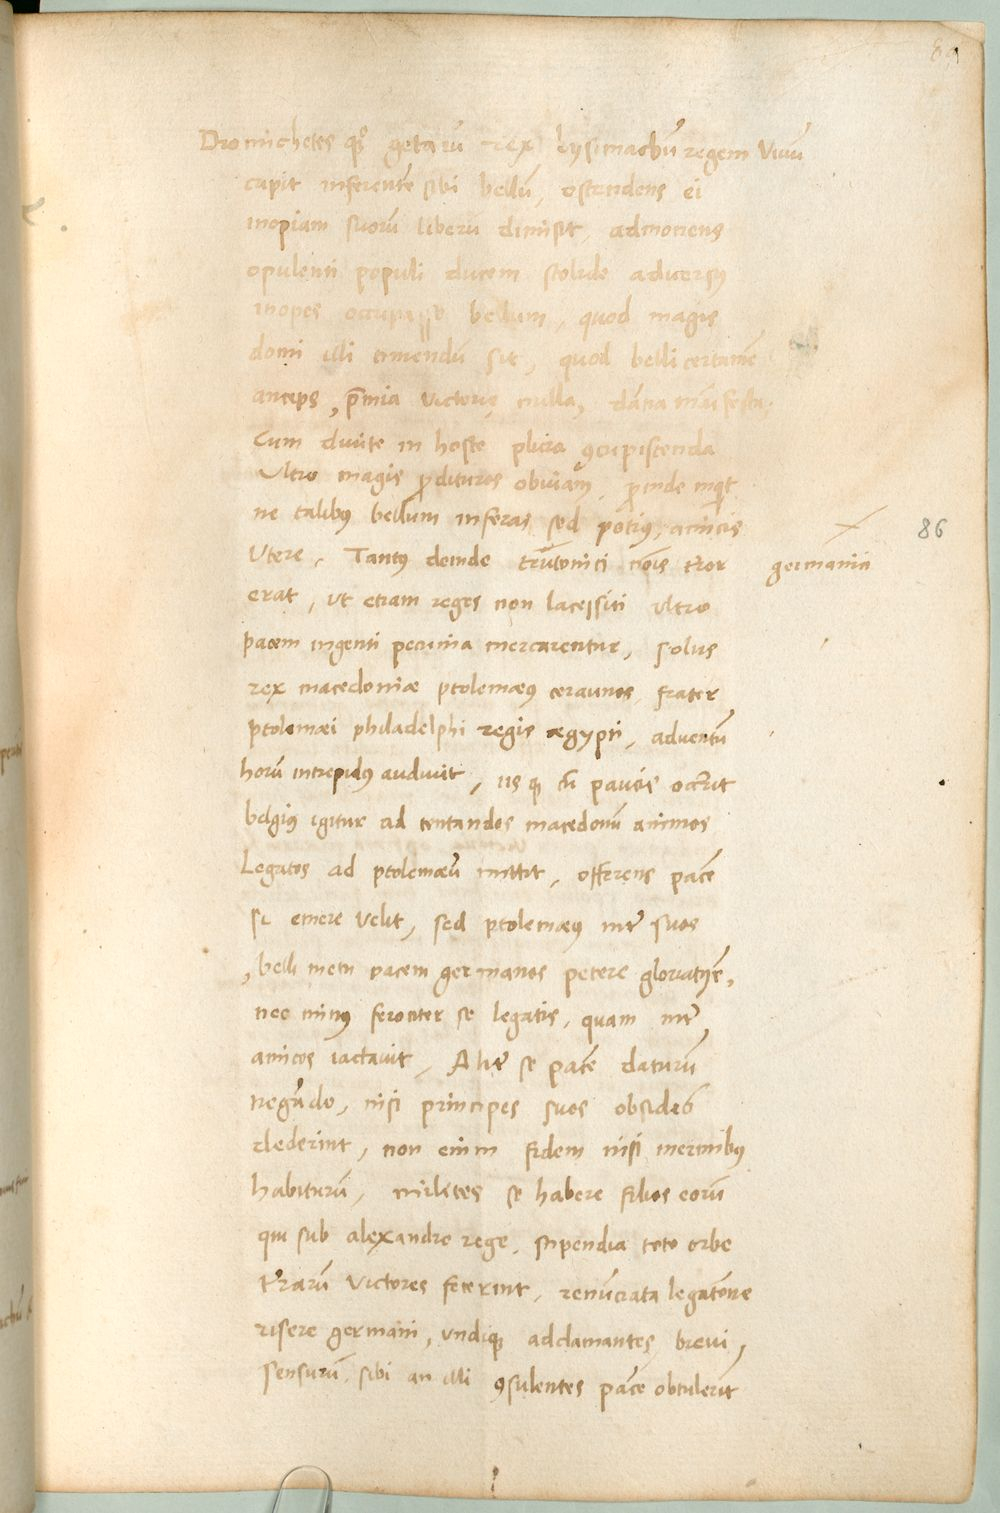 89
Dromichetes qͦꝫ getarū rex lysimachū regem vivū
capit inferentē sibi bellū, ostendens ei
inopiam suorū liberū dimisit, admonens
opulenti populi ducem stolide adversꝰ
inopes occupasse bellum, quod magis
domi illi timendū sit, quod belli certamē
anceps, p̄mia victorię nulla, dāna māifesta,
Cum divite in hoste plura ꝯcupiscenda
Vltro magis ꝓdituros obviam, ꝓinde inqͥt
ne talibꝰ bellum inferas sed potiꝰ, amicis
86
Vtere. Tantꝰ deinde teutonici nōis t̄ror
germanici
erat, ut etiam reges non lacessiti ultro
pacem ingenti pecunia mercarentur, solus
rex macedoniæ ptolemæꝰ ceraunos, frater
ptolomæi philadelphi regis ægypti, adventū
horū intrepidꝰ audivit, iis qꝫ cū paucis occ̄rit
belgiꝰ igitur ad tentandos macedonū animos
Legatos ad ptolemæū mittit, offerens pacē
si emere velit, sed ptolemæꝰ int̄ suos
, belli metu pacem germanos petere
nec minꝰ ferociter se legatis, quam int̄
amicos iactavit, Alit̄ se pacē daturū
negādo, nisi principes suos obsides
dederint, non enim fidem nisi inermibꝰ
habiturū, milites se habere filios eorū
qui sub alexandro rege, stipendia toto orbe
t̄rarū victores fecerint, renūciata legatōne
risere germani, undiqꝫ adclamantes, brevi,
sensurū, sibi an illi ꝯsulentes pacē obtulerīt